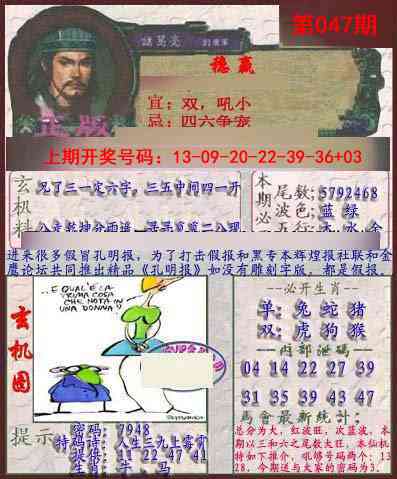 第047期
諸葛亮
穩贏
宜：双，吼小
忌：四六争宠
正版
上期开奖号码：13-09-20-22-39-36+03
玄机料
见了三一定六字，三五中间四一开
本期必
尾数:5792468
波色:蓝 绿
五行:木 水 金
进来很多假冒孔明报，为了打击假报和黑专本辉煌报社联和金
鹰论坛共同推出精品《孔明报》如没有雕刻字版，都是假报。
玄机图
..E QUAL'È LA
PRIMA COSA
CHE NOTA IN
UNA DONNA?
必开生肖
单: 兔 蛇 猪
双: 虎 狗 猴
内部泄码
04 14 22 27 39
31 35 39 43 47
馬會最新統計:
总分为大，红波旺，次蓝波，本
期以三和六之尾数大旺，本仙机
特如下推介，吼够号码两个：13
28，今期送与大家的密码为3.
提示
密码: 7948
特码诗: 人生三九上霄霄
提供: 11 22 47 41
生肖: 牛、马